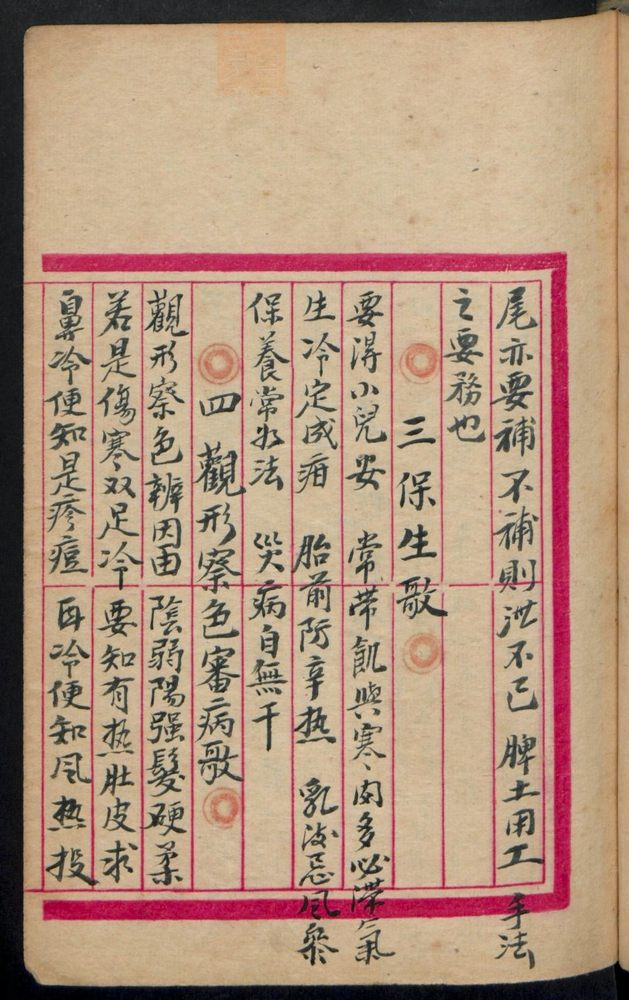 尾亦要補不補則泄不已脾土用工手法
之要務也
三保生歌
要得小兒安 常带飢與寒 肉多必滞氣
生冷定成疳 胎前防辛热 乳後忌風參
保養常如法 災病自無干
四觀形察色審病歌
觀形察色辨因由 陰弱陽强髮硬柔
若是傷寒双足冷 要知有热肚皮求
鼻冷便知是疹痘 耳冷便知风热投